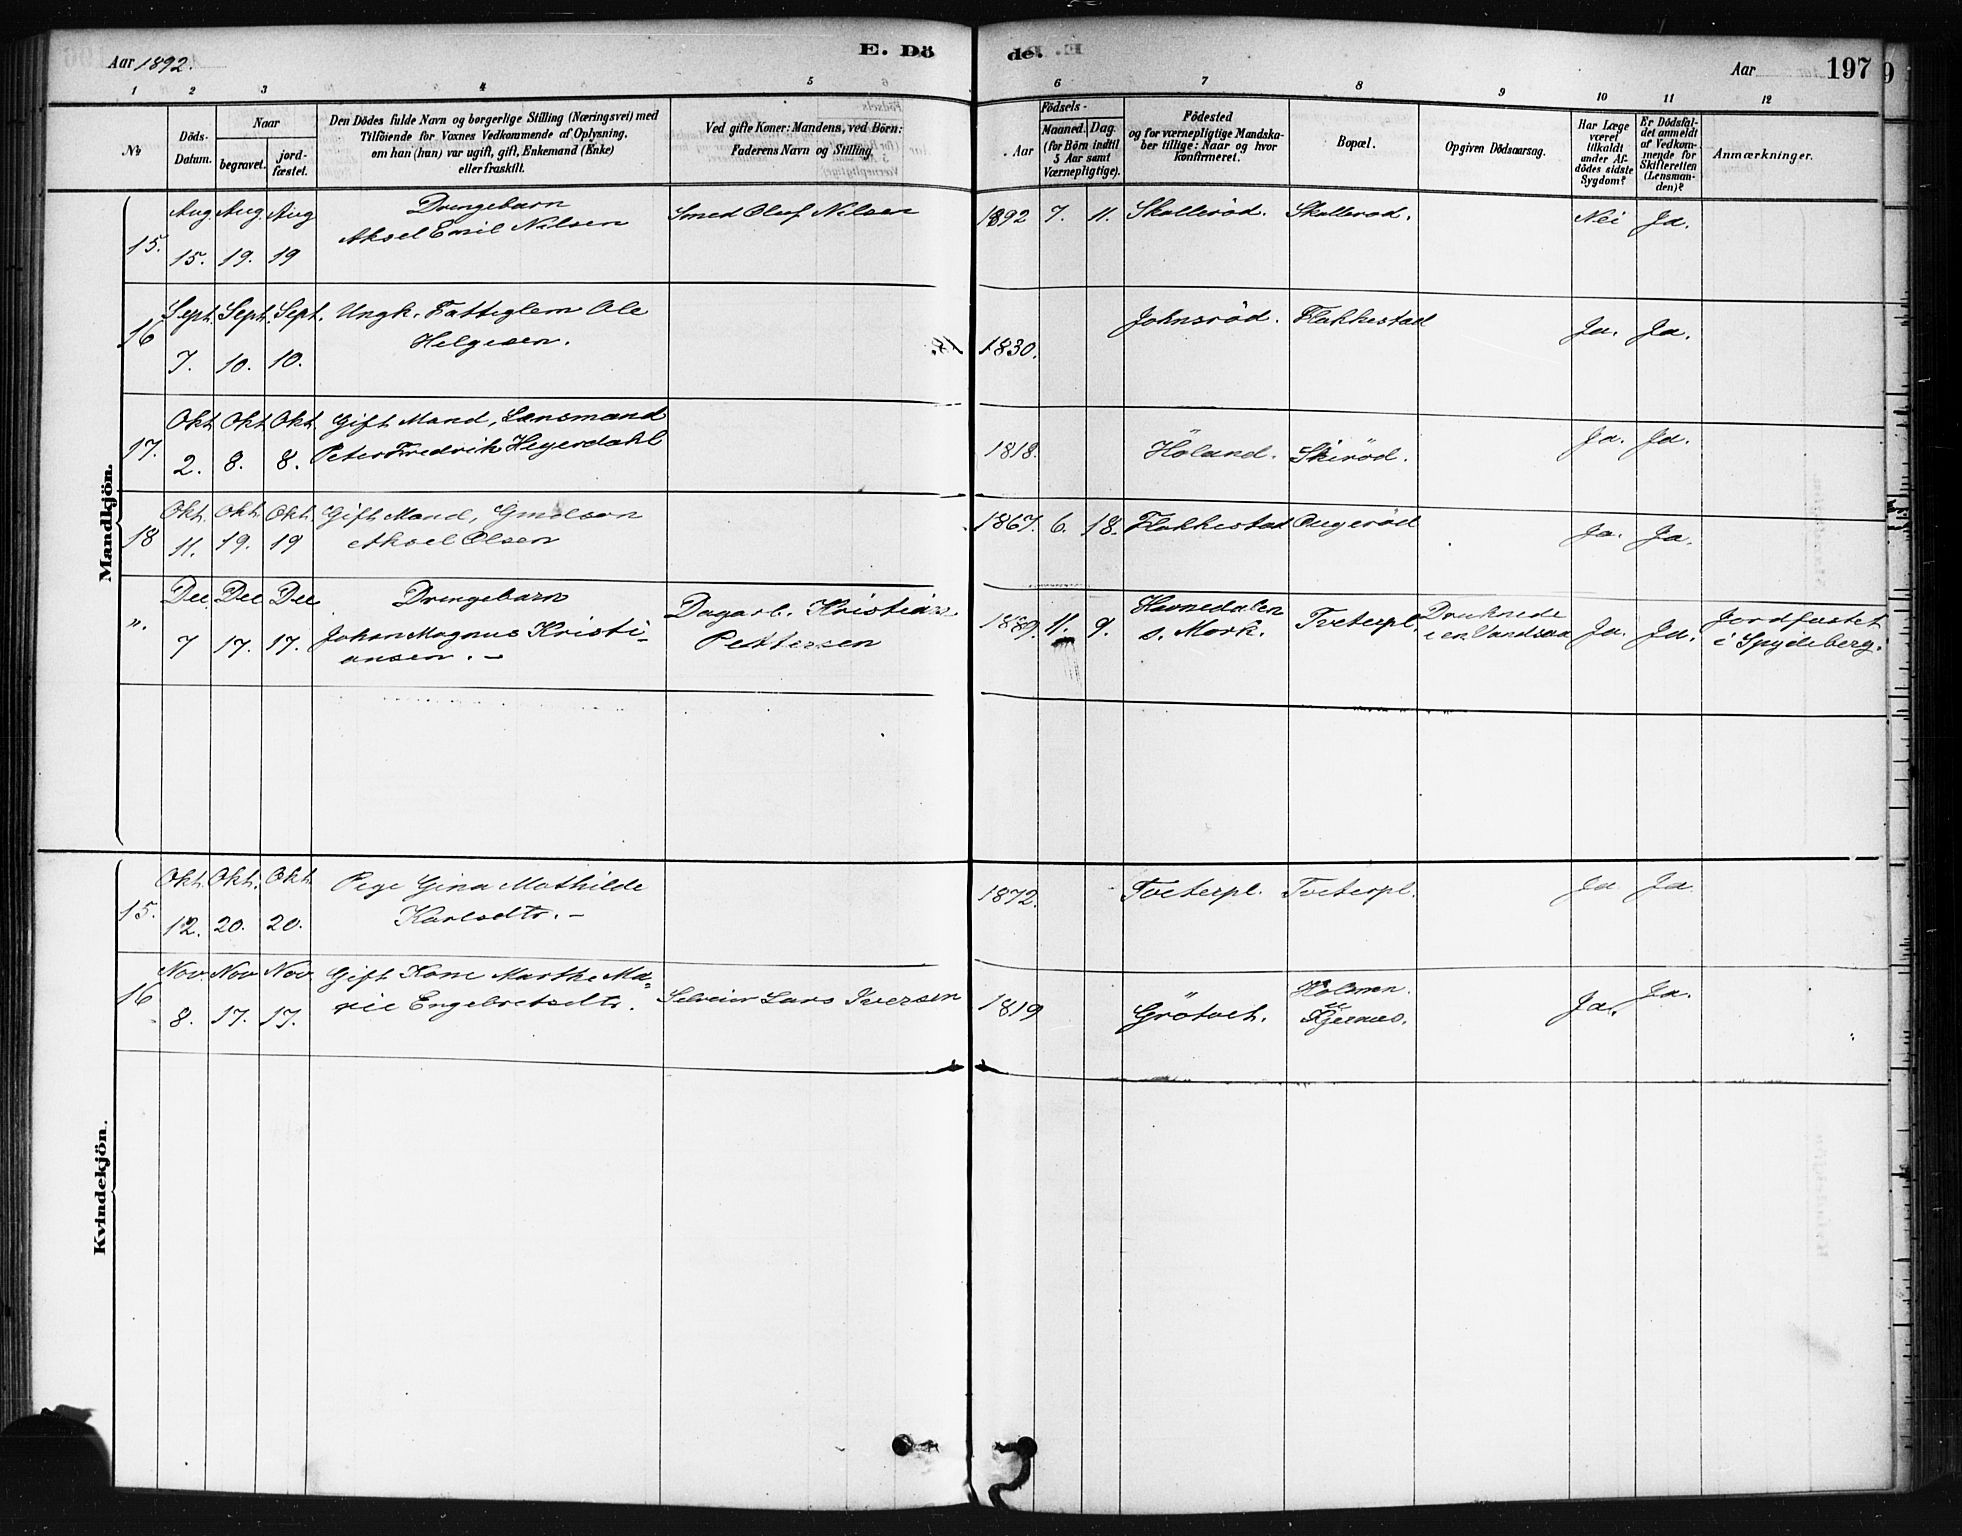 Aar 1892.
E. Dö
de.
Aar
197
1 2 3 4 5 6 7 8 9 10 11 12
No
Döds-
Datum.
Naar
begravet.
jord-
fæstet.
Den Dödes fulde Navn og borgerlige Stilling (Næringsvei) med
Tilföiende for Voxnes Vedkommende af Oplysning,
om han (hun) var ugift, gift, Enkemand (Enke)
eller fraskilt.
Ved gifte Koner: Mandens, ved Börn:
Faderens Navn og Stilling.
Födsels-
Aar
Maaned. Dag.
(for Börn indtil
5 Aar samt
Værnepligtige).
Födested
og for værnepligtige Mandska-
ber tillige: Naar og hvor
konfirmeret.
Bopæl.
Opgiven Dödsaarsag.
Har Læge
været
tilkaldt
under Af-
dödes sidste
Sygdom?
Er Dödsfal-
det anmeldt
af Vedkom-
mende for
Skifteretten
(Lensman-
den)?
Anmærkninger.
Mandkjön.
15. Aug. 15. Aug. 19. Aug 19 Drengebarn
Aksel Emil Nilsen
Smed Oluf Nilsen
1892 7. 11. Skolleröd. Skolleröd. Nei Ja.
16 Sept. 7. Sept. 10. Sept. 10. Ungk. Fattiglem Ole
Helgesen.
1830. Johnsröd. Flakkestad Ja. Ja.
17. Okt 2. Okt 8. Okt 8. Gift Mand, Lensmand
Peter Fredrik Heyerdahl
1818. Höland. Skiröd. Ja. Ja.
18 Okt. 11. Okt. 19. Okt. 19 Gift Mand,
Aksel Olsen
1867. 6. 18. Flakkestad Augeröd Ja. Ja.
". Dec 7 Dec 17. Dec 17. Drengebarn
Johan Magnus Kristi-
ansen.
Dagarb. Kristian
Pettersen
1889. 11. 9. s. Mork. Tveterpl. Druknede
i en
Ja. Ja. Jordfæstet
i Spydeberg.
Kvindekjön.
15. Okt. 12. Okt. 20. Okt. 20. Pige Gina Mathilde
Karlsdtr.
1872. Tveterpl. Tveterpl. Ja Ja
16 Nov. 8. Nov 17. Nov. 17. Gift Kone Marthe Ma-
rie Engebretsdtr.
Selveier Lars Iversen
1819 Grötvet. Holmen
u.
Kjernes.
Ja. Ja.